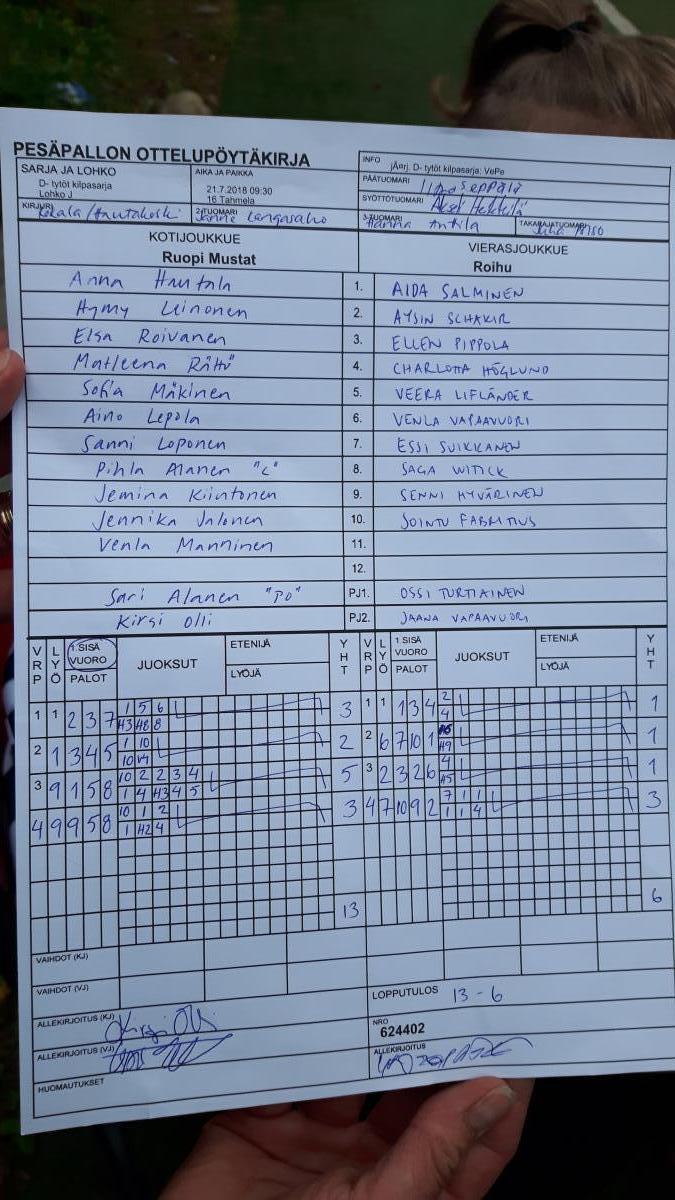 PESÄPALLON OTTELUPÖYTÄKIRJA
SARJA JA LOHKO
D- tytöt kilpasarja
Lohko J
AIKA JA PAIKKA
21.7.2018 09:30
16 Tahmela
INFO
jÄrj. D- tytöt kilpasarja: VePe
PÄÄTUOMARI Seppälä
SYÖTTÖTUOMARI
KIRJURI
2-TUOMARI Janne Langasaho
3-TUOMARI Hanna Antila
TAKARAJATUOMARI Juha
KOTIJOUKKUE
Ruopi Mustat
VIERASJOUKKUE
Roihu
Anna Hautala 1. AIDA SALMINEN
Hymy Leinonen 2. AYSIN SCHAKIR
Elsa Roivanen 3. ELLEN PIPPOLA
Matleena Rättö 4. CHARLOTTA HÖGLUND
Sofia Mäkinen 5. VEERA LIFLÄNDER
Aino Lepola 6. VENLA VAPAAVUORI
Sanni Loponen 7. ESSI SUIKKANEN
Pihla Alanen "C" 8. SAGA WITICK
Jemina Kiintonen 9. SENNI HYVÄRINEN
Jennika Jalonen 10. JOINTU FABRITIUS
Venla Manninen 11.
12.
Sari Alanen "PO" PJ1. OSSI TURTIAINEN
Kirsi Olli PJ2. JAANA VAPAAVUORI
VRP LYÖ 1.SISÄ VUORO PALOT JUOKSUT ETENIJÄ LYÖJÄ YHT VRP LYÖ 1.SISÄ VUORO PALOT JUOKSUT ETENIJÄ LYÖJÄ YHT
1 5 6 2
1 1 2 3 7 H3 H8 8 3 1 1 1 3 4 4 1
1 10
2 1 3 4 5 10 V4 2 2 6 7 10 1 H9 1
10 2 2 3 4 4
3 9 1 5 8 1 4 H3 4 5 5 3 2 3 2 6 H5 1
10 1 2 7 1 1
4 9 9 5 8 1 H2 4 3 4 7 10 9 2 1 1 4 3
13 6
VAIHDOT (KJ)
VAIHDOT (VJ)
LOPPUTULOS 13 - 6
ALLEKIRJOITUS (KJ) Kirsi Olli
NRO
624402
ALLEKIRJOITUS (VJ)
ALLEKIRJOITUS
HUOMAUTUKSET